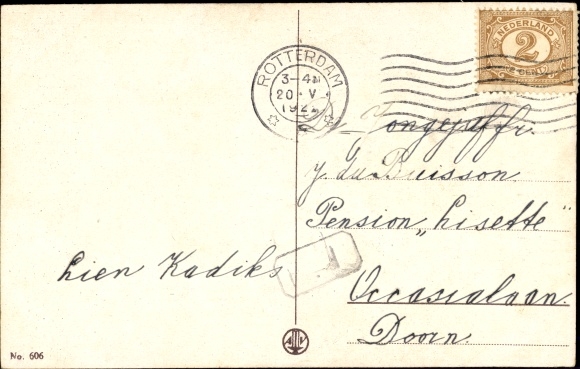 NEDERLAND
2
CENT
ROTTERDAM
3-4N
20 V
192
Jongejuffr.
J. du Buisson.
Pension „Lisette"
Lien Kadiks
Occasialaan.
Doorn.
No. 606